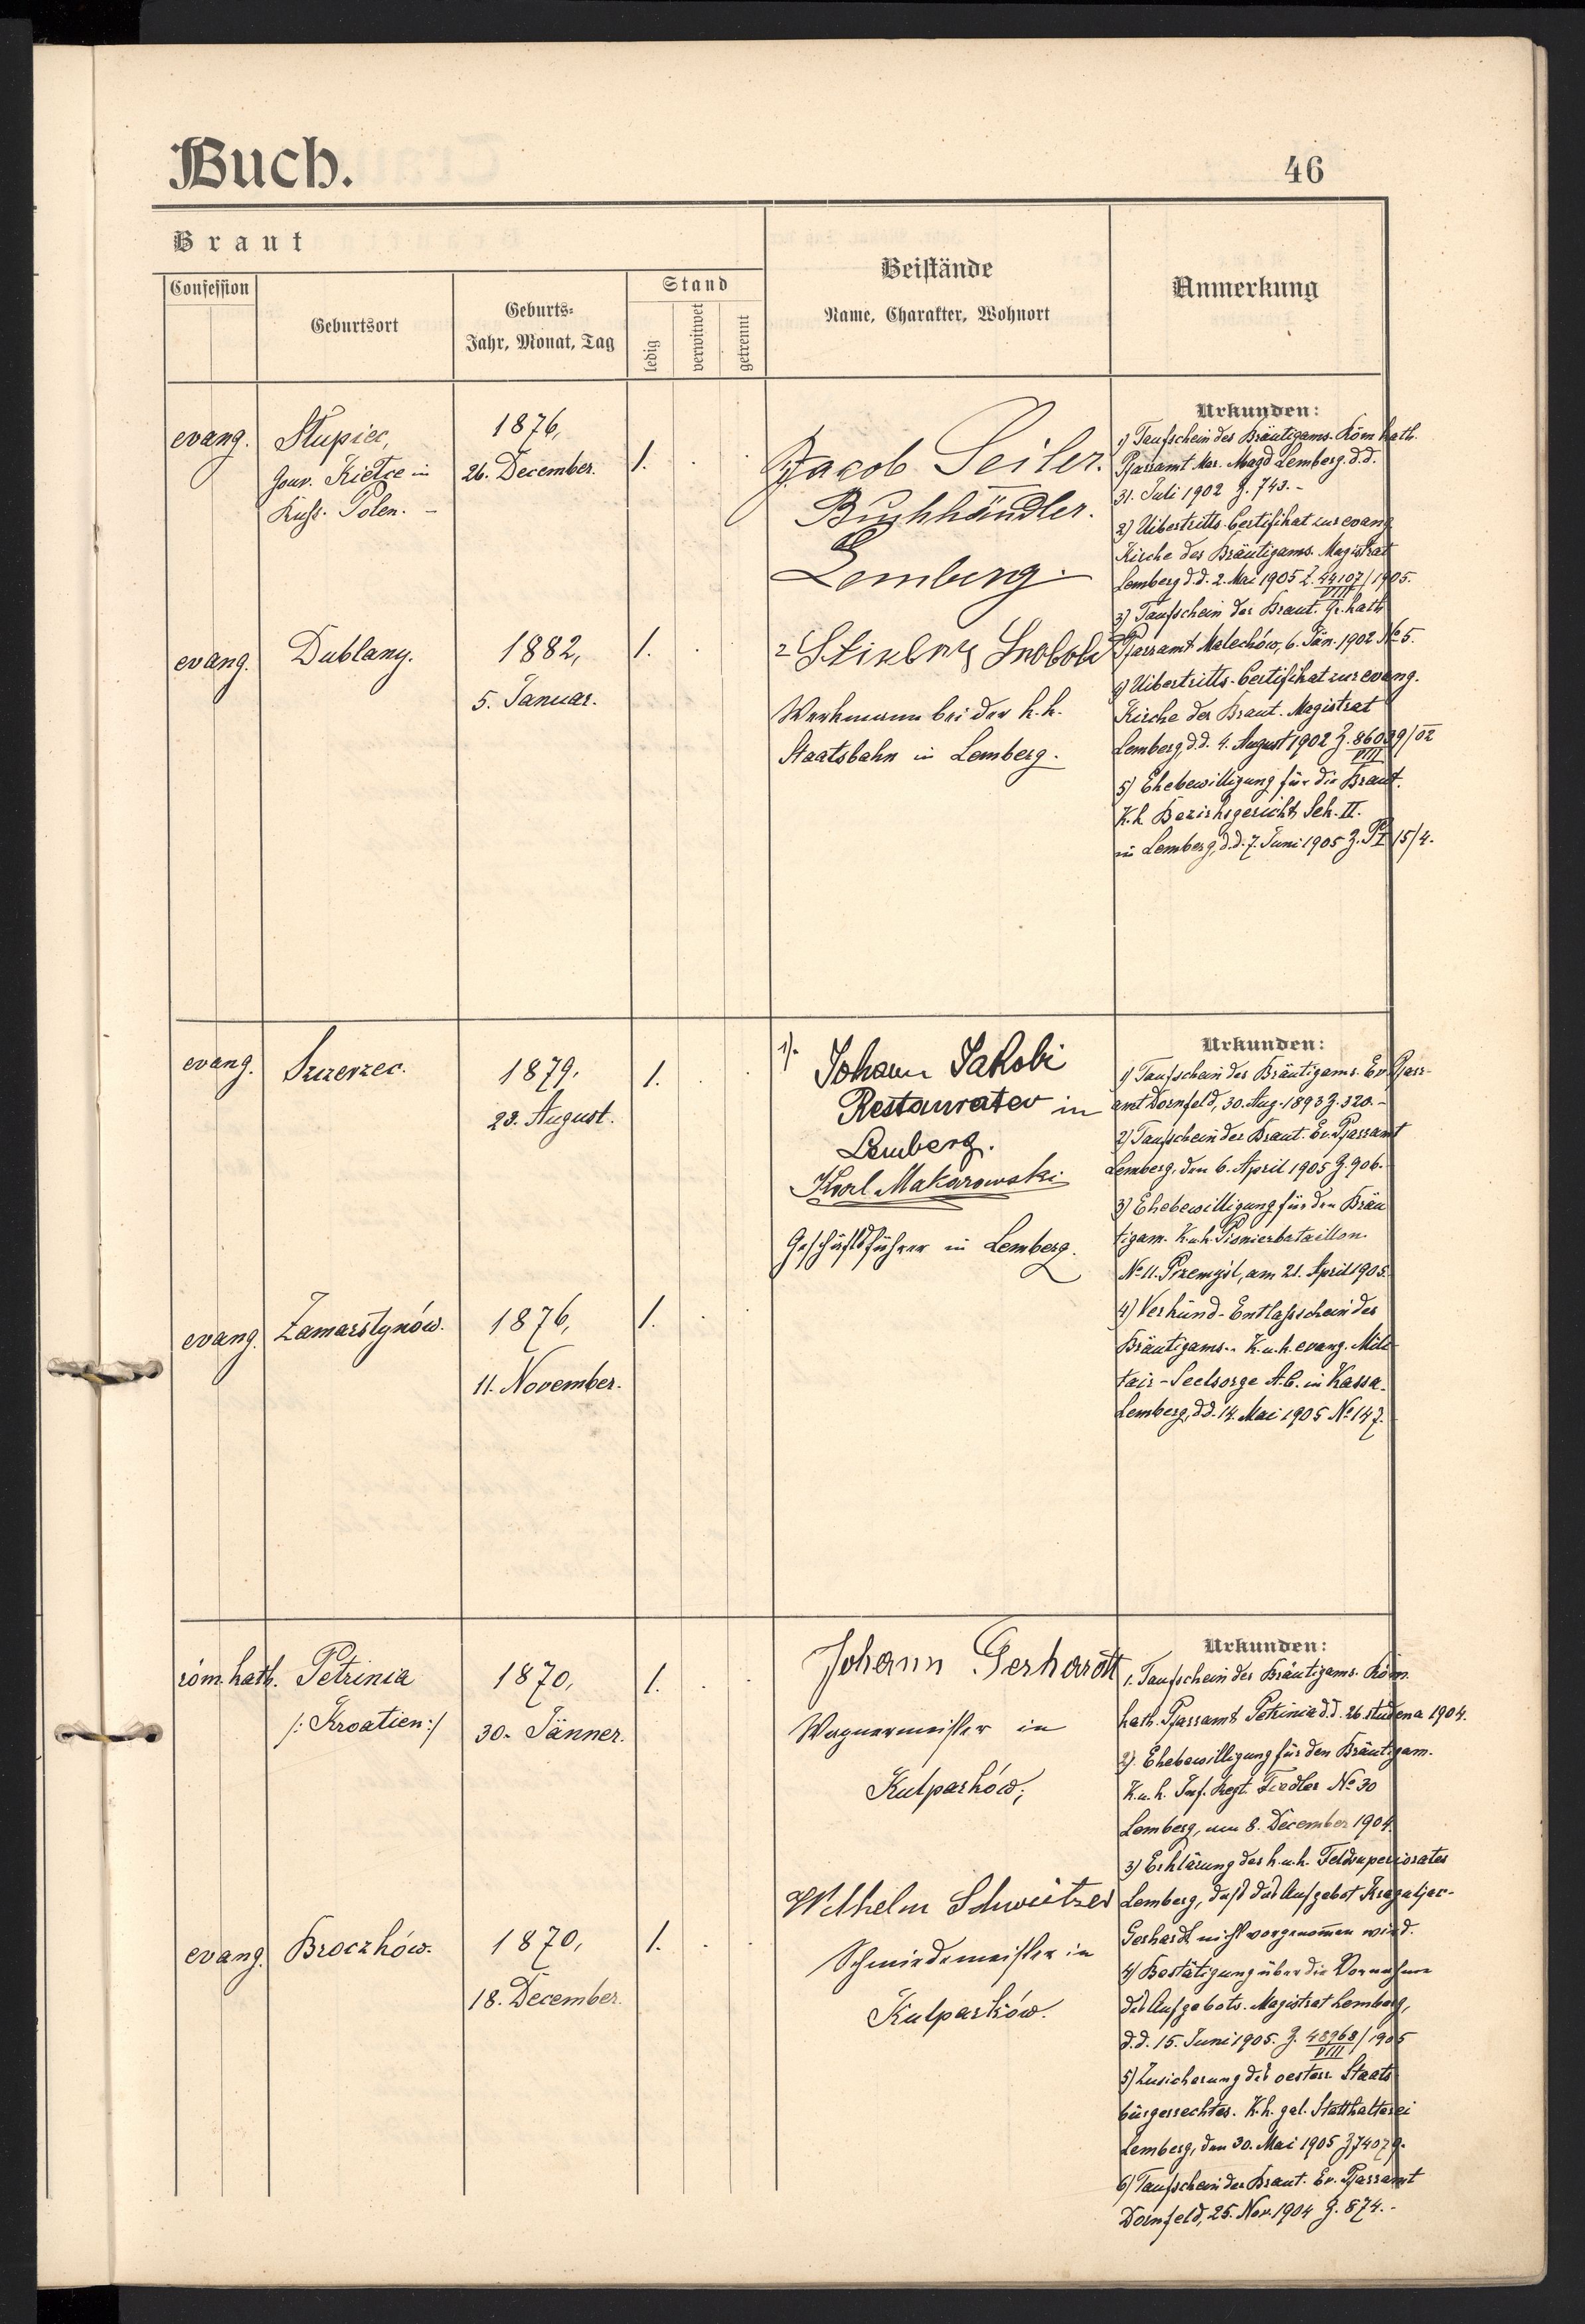 Buch.
46
Braut
Confession
Geburtsort
Geburts-
Jahr, Monat, Tag
Stand
ledig
verwitwet
getrennt
Beistände
Name, Charakter, Wohnort
Anmerkung
evang.
Słupiec,
Gouv. Kielce in
Russ. Polen. -
1876,
26. December.
1.
Jacob Seiler.
Buchhändler.
Lemberg.
Urkunden:
1) Taufschein des Bräutigams. Röm kath.
Pfarramt Mar. Magd Lemberg. d.d.
31. Juli 1902 Z. 743. -
2) Uibertritts-Certifikat zur evang
Kirche des Bräutigams. Magistrat
Lemberg d.d. 2. Mai 1905 Z. 44107/1905.
VIII
3) Taufschein der Braut. Gr. kath
Pfarramt Malechów, 6. Jän. 1902 No 5.
4) Uibertritts-Certifikat zur evang.
Kirche der Braut. Magistrat
Lemberg, d.d. 4. August 1902 Z. 86039/02
VIII
5) Ehebewilligung für die Braut.
K.k. Bezirksgericht Sek. II.
in Lemberg, d.d. 7. Juni 1905 Z. 15/4.
evang.
Dublany.
1882,
5. Januar.
1.
2
Werkmann bei der k.k.
Staatsbahn in Lemberg.
evang.
Szczerzec.
1879.
23. August.
1.
1).
Johann Jakobi
Restaurateur in
Lemberg.
Karl Makarowski
Geschäftsführer in Lemberg.
Urkunden:
1) Taufschein des Bräutigams. Ev. Pfarr-
amt Dornfeld, 30. Aug. 1893 Z. 320. -
2) Taufschein der Braut. Ev. Pfarramt
Lemberg, den 6. April 1905 Z. 906. -
3) Ehebewilligung für den Bräu
tigam. K.u.k. Pionierbataillon
No 11. Przemyśl, am 21. April 1905.
4) Verkünd-Entlaßschein des
Bräutigams. - K.u.k. evang. Mili-
tair-Seelsorge A.C. in Kassa-
Lemberg, d.d. 14. Mai 1905 No 147.
evang.
Zamarstynów.
1876,
11. November.
1.
röm. kath.
Petrinia
/: Kroatien :/
1870,
30. Jänner.
1.
Johann Gerhardt
Wagnermeister in
Kulparków;
Urkunden:
1. Taufschein des Bräutigams. Röm.
kath. Pfarramt Petrinia d.d. 26. studena 1904.
2) Ehebewilligung für den Bräutigam.
K.u.k. Inf. Regt. Fiedler No 30
Lemberg, am 8. December 1904.
3) Erklärung des k.u.k. Feldsuperiorates
Lemberg, daß das Aufgebot
Gerhardt nicht vorgenommen wird.
4) Bestätigung über die Vornahme
des Aufgebots. Magistrat Lemberg,
d.d. 15. Juni 1905. Z. 48968/1905
VIII
5) Zusicherung des oesterr. Staats
bürgerrechtes. K.k. gal. Statthalterei
Lemberg, den 30. Mai 1905 Z 74079.
6) Taufschein der Braut. Ev. Pfarramt
Dornfeld, 25. Nov. 1904 Z. 874. -
evang.
Broczków.
1870,
18. December.
1.
Wilhelm Schweitzer
Schmiedemeister in
Kulparków.